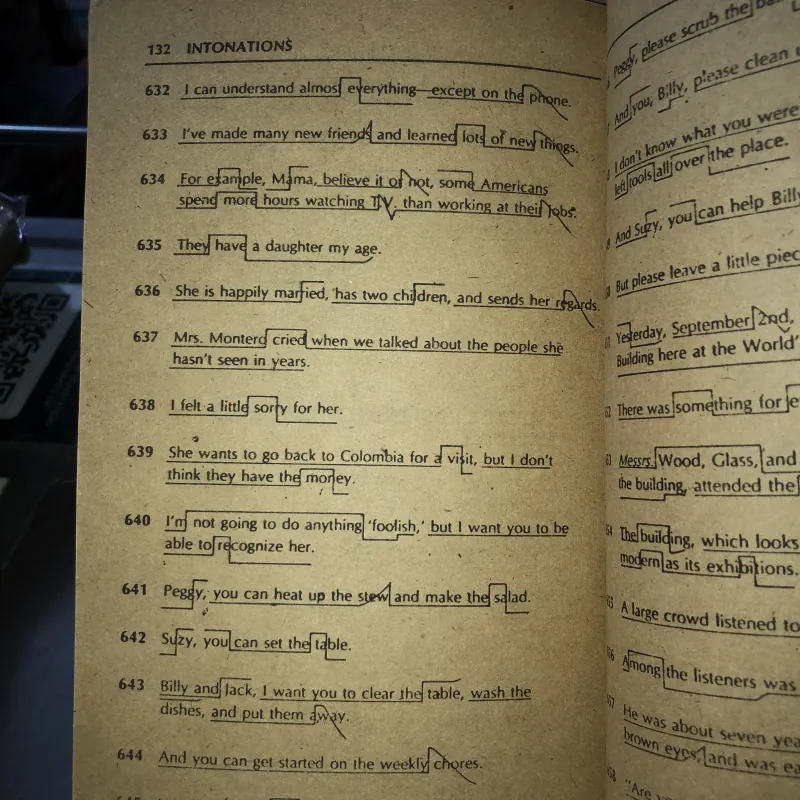 132 INTONATIONS
632 I can understand almost everything—except on the phone.
633 I've made many new friends and learned lots of new things.
634 For example, Mama, believe it or not, some Americans
spend more hours watching T.V. than working at their jobs.
635 They have a daughter my age.
636 She is happily married, has two children, and sends her regards.
637 Mrs. Montero cried when we talked about the people she
hasn't seen in years.
638 I felt a little sorry for her.
639 She wants to go back to Colombia for a visit, but I don't
think they have the money.
640 I'm not going to do anything 'foolish,' but I want you to be
able to recognize her.
641 Peggy, you can heat up the stew and make the salad.
642 Suzy, you can set the table.
643 Billy and Jack, I want you to clear the table, wash the
dishes, and put them away.
644 And you can get started on the weekly chores.
Peggy, please scrub the
And you, Billy, please clean
I don't know what you were
left tools all over the place.
And Suzy, you can help Billy
But please leave a little
Yesterday, September 2nd,
Building here at the World'
There was something for
Messrs. Wood, Glass, and
the building, attended the
The building, which looks
modern as its exhibitions.
A large crowd listened to
Among the listeners was
He was about seven
brown eyes, and was
"Are